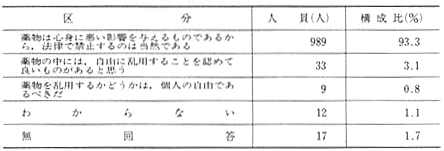 区分 人員(人) 構成比(%)
薬物は心身に悪い影響を与えるものであるか
ら，法律で禁止するのは当然である 989 93.3
薬物の中には，自由に乱用することを認めて
良いものがあると思う 33 3.1
薬物を乱用するかどうかは，個人の自由であ
るべきだ 9 0.8
わからない 12 1.1
無回答 17 1.7